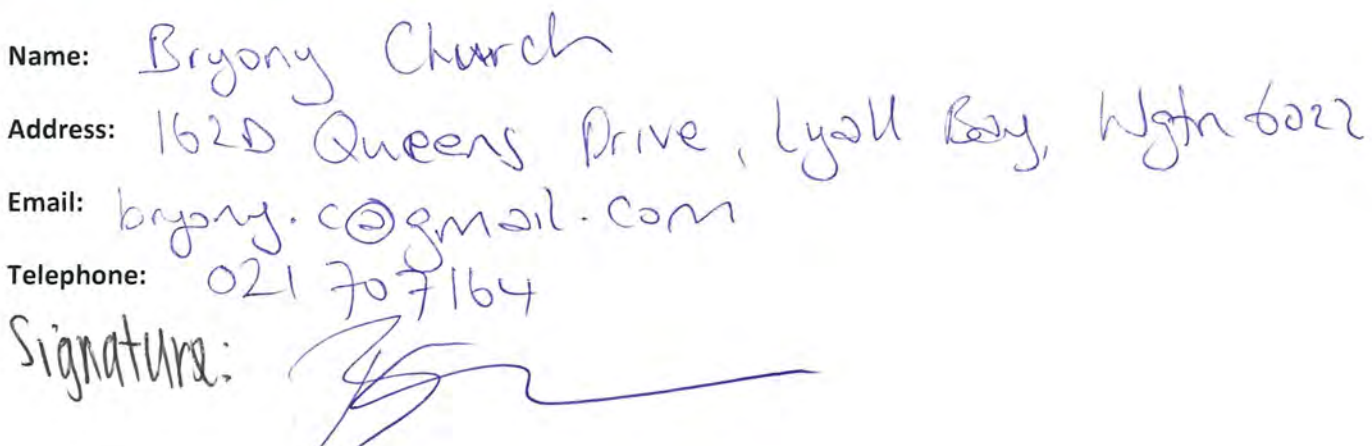 Name: Bryony Church
Address: 162D Queens Drive, Lyall Bay, Wgtn 6022
Email: bryony.c@gmail.com
Telephone: 021 707164
Signature: